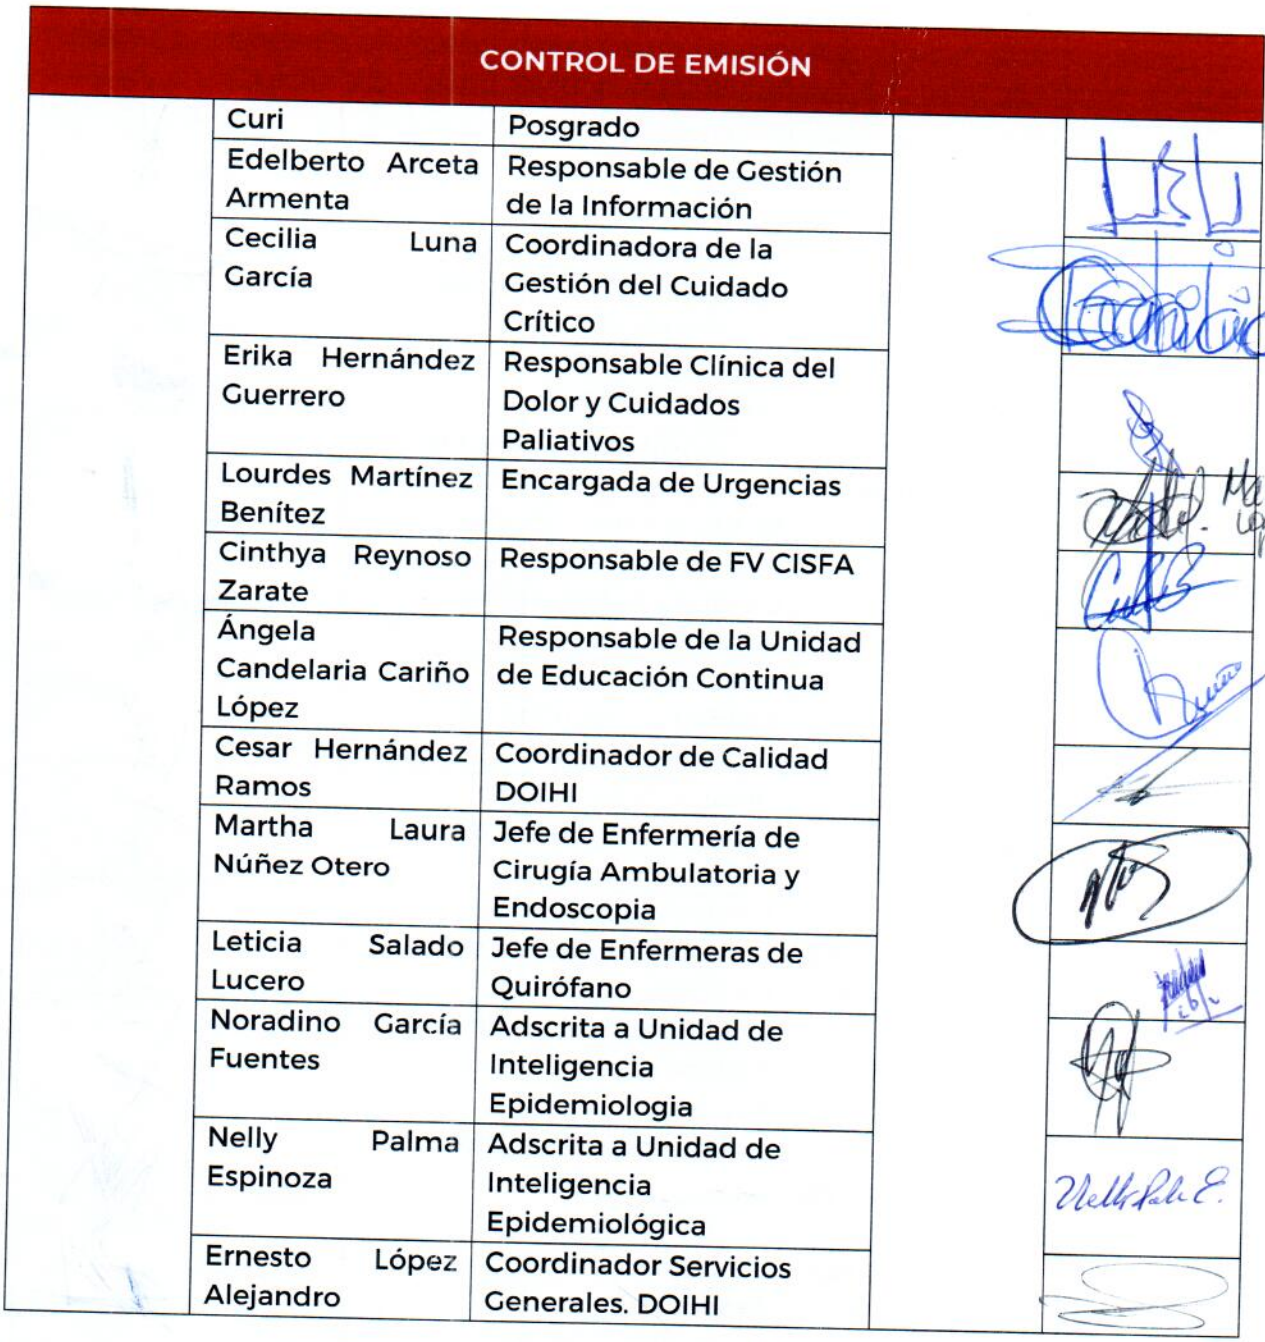 CONTROL DE EMISIÓN
Curi
Posgrado
Edelberto Arceta
Armenta
Responsable de Gestión
de la Información
Cecilia Luna
García
Coordinadora de la
Gestión del Cuidado
Crítico
Erika Hernández
Guerrero
Responsable Clínica del
Dolor y Cuidados
Paliativos
Lourdes Martínez
Benítez
Encargada de Urgencias
Cinthya Reynoso
Zarate
Responsable de FV CISFA
Ángela
Candelaria Cariño
López
Responsable de la Unidad
de Educación Continua
Cesar Hernández
Ramos
Coordinador de Calidad
DOIHI
Martha Laura
Núñez Otero
Jefe de Enfermería de
Cirugía Ambulatoria y
Endoscopia
Leticia Salado
Lucero
Jefe de Enfermeras de
Quirófano
Noradino García
Fuentes
Adscrita a Unidad de
Inteligencia
Epidemiologia
Nelly Palma
Espinoza
Adscrita a Unidad de
Inteligencia
Epidemiológica
Ernesto López
Alejandro
Coordinador Servicios
Generales. DOIHI